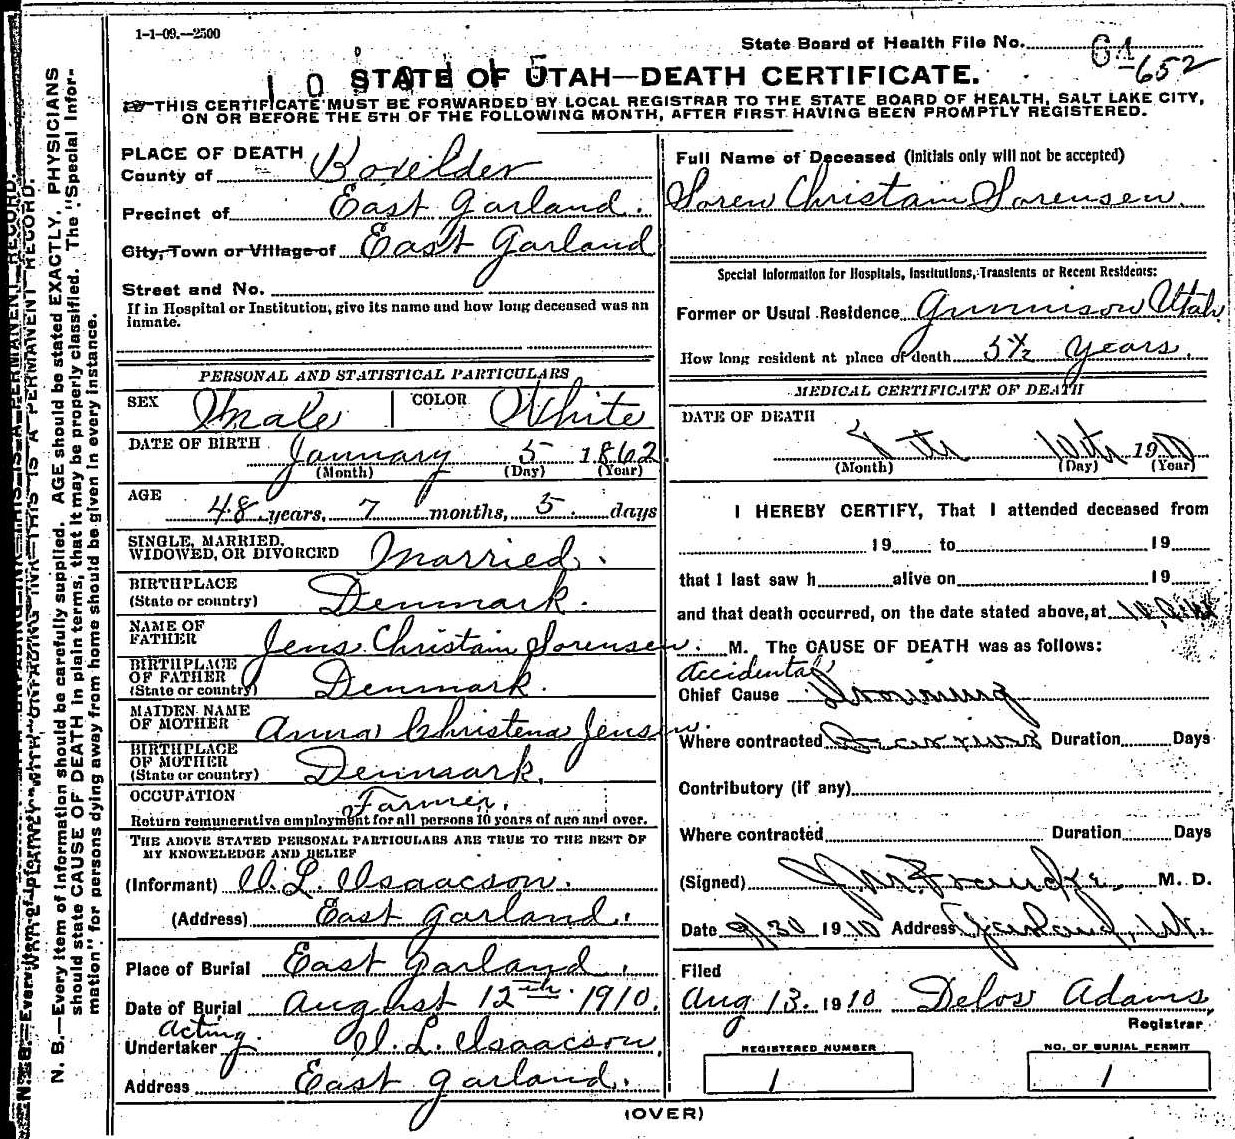 1-1-09.—2500
State Board of Health File No. 64-652
STATE OF UTAH—DEATH CERTIFICATE.
THIS CERTIFICATE MUST BE FORWARDED BY LOCAL REGISTRAR TO THE STATE BOARD OF HEALTH, SALT LAKE CITY,
ON OR BEFORE THE 5TH OF THE FOLLOWING MONTH, AFTER FIRST HAVING BEEN PROMPTLY REGISTERED.
PLACE OF DEATH
County of Boxelder
Precinct of East Garland.
City, Town or Village of East Garland
Street and No.
If in Hospital or Institution, give its name and how long deceased was an
inmate.
PERSONAL AND STATISTICAL PARTICULARS
SEX Male COLOR White
DATE OF BIRTH January 5 1862
(Month) (Day) (Year)
AGE
48 years, 7 months, 5 days
SINGLE, MARRIED,
WIDOWED, OR DIVORCED Married.
BIRTHPLACE
(State or country) Denmark.
NAME OF
FATHER Jens Christain Sorensen
BIRTHPLACE
OF FATHER
(State or country) Denmark.
MAIDEN NAME
OF MOTHER Anna Christena Jensen.
BIRTHPLACE
OF MOTHER
(State or country) Denmark.
OCCUPATION Farmer.
Return remunerative employment for all persons 10 years of age and over.
THE ABOVE STATED PERSONAL PARTICULARS ARE TRUE TO THE BEST OF
MY KNOWELEDGE AND BELIEF
(Informant) O. L. Isaacson.
(Address) East Garland.
Place of Burial East Garland.
Date of Burial August 12th. 1910.
Acting
Undertaker O. L. Isaacson.
Address East Garland.
Full Name of Deceased (Initials only will not be accepted)
Soren Christain Sorensen.
Special Information for Hospitals, Institutions, Transients or Recent Residents:
Former or Usual Residence Gunnison Utah.
How long resident at place of death 5½ years.
MEDICAL CERTIFICATE OF DEATH
DATE OF DEATH
10th 1910
(Month) (Day) (Year)
I HEREBY CERTIFY, That I attended deceased from
19 to 19
that I last saw h alive on 19
and that death occurred, on the date stated above, at
M. The CAUSE OF DEATH was as follows:
Accidental
Chief Cause Drowning
Where contracted Duration Days
Contributory (if any)
Where contracted Duration Days
(Signed) M. D.
Date 8/30 1910 Address Garland, Ut.
Filed
Aug 13. 1910 Delos Adams,
Registrar
REGISTERED NUMBER NO. OF BURIAL PERMIT
1 1
(OVER)
N. B.—Every item of Information should be carefully supplied. AGE should be stated EXACTLY. PHYSICIANS
should state CAUSE OF DEATH in plain terms, that it may be properly classified. The "Special Infor-
mation" for persons dying away from home should be given in every instance.